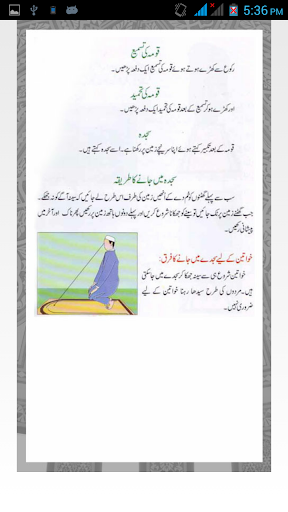 5:36 PM
قومہ کی تسمیع
رکوع سے کھڑے ہوتے ہوئے قومہ کی تسمیع ایک دفعہ پڑھیں۔
قومہ کی تحمید
اور کھڑے ہو کر تسمیع کے بعد قومہ کی تحمید ایک دفعہ پڑھیں۔
سجدہ
قومہ کے بعد تکبیر کہتے ہوئے اپنا سر نیچے زمین پر رکھنا ہے۔ اسے سجدہ کہتے ہیں۔
سجدہ میں جانے کا طریقہ
سب سے پہلے گھٹنوں کو خم دے کے انھیں زمین کی طرف اس طرح لے جائیں کہ سینہ آگے کو نہ جھکے۔
جب گھٹنے زمین پر ٹک جائیں تو سینے کو جھکانا شروع کریں اور پہلے دونوں ہاتھ زمین پر رکھیں پھر ناک اور آخر میں
پیشانی رکھیں۔
خواتین کے لیے سجدے میں جانے کا فرق:
خواتین شروع ہی سے سینہ جھکا کر سجدے میں جا سکتی
ہیں۔ مردوں کی طرح سیدھا رہنا خواتین کے لیے
ضروری نہیں۔